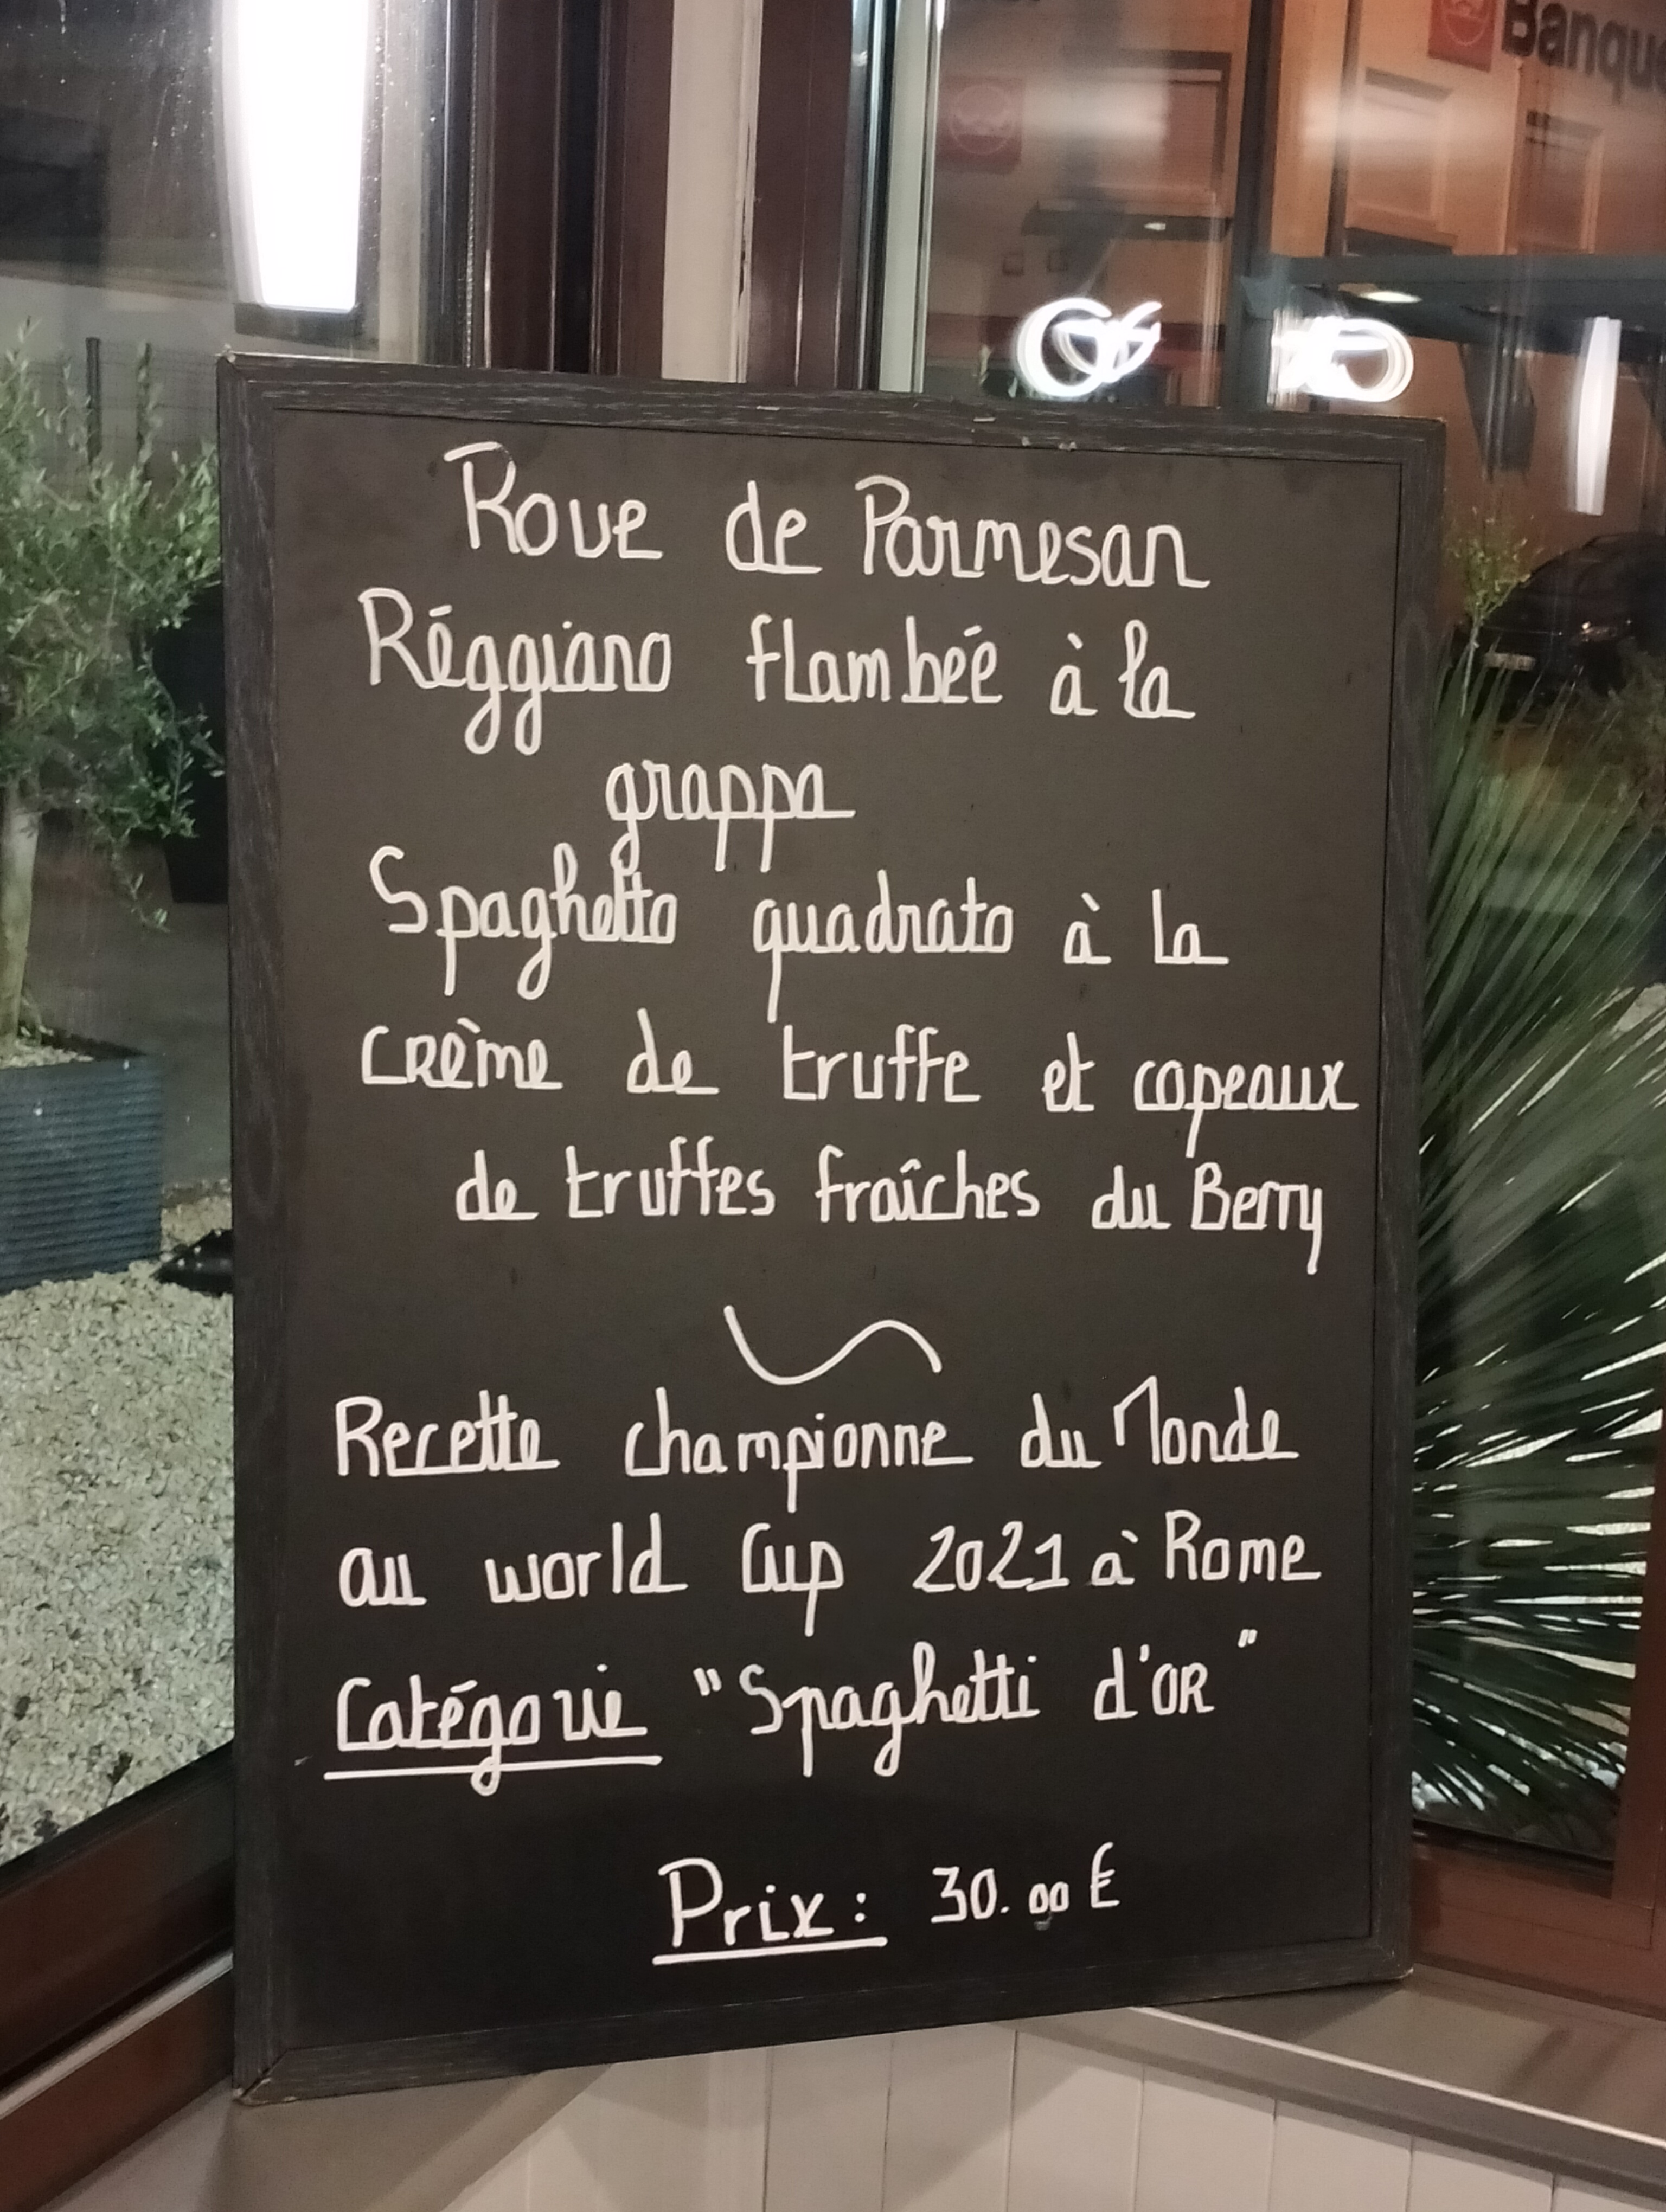 Banque
Roue de Parmesan
Réggiano flambée à la
grappa
Spaghetto quadrato à la
crème de truffe et copeaux
de truffes fraîches du Berry
Recette championne du Monde
au world Cup 2021 à Rome
Catégorie "Spaghetti d'OR"
Prix : 30.00 €